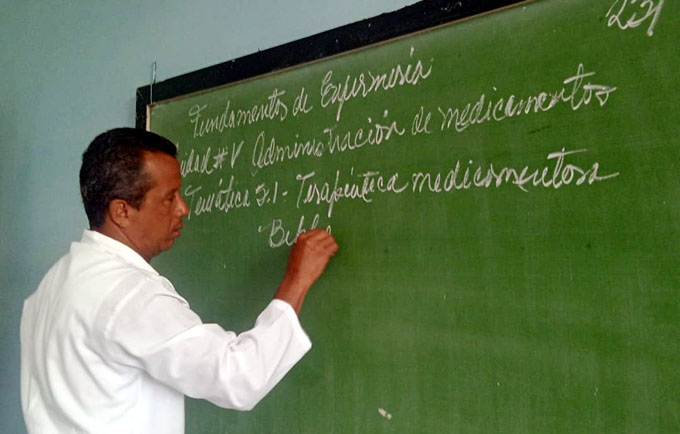 2:31
Fundamentos de Enfermería
idad # V Administración de medicamentos
Temática 5.1 - Terapéutica medicamentosa
Bibl